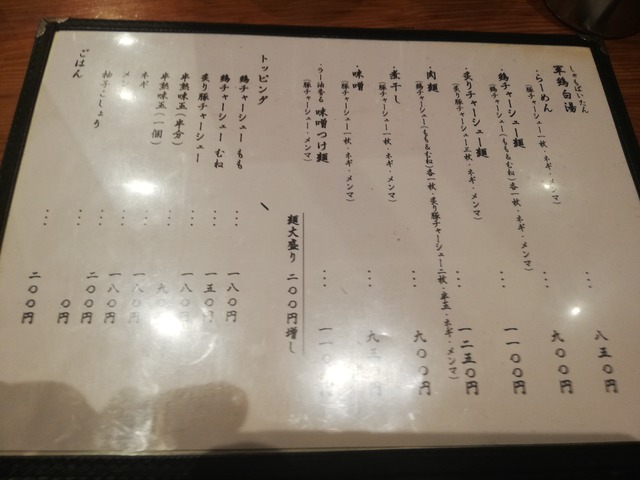 しゃもぱいたん
軍鶏白湯
・らーめん … 八五〇円
(豚チャーシュー一枚、ネギ、メンマ)
・鶏チャーシュー麺 … 九〇〇円
(鶏チャーシュー(もも&むね)各一枚、ネギ、メンマ)
・炙りチャーシュー麺 … 一一〇〇円
(炙り豚チャーシュー三枚、ネギ、メンマ)
・肉麺 … 一二五〇円
(鶏チャーシュー(もも&むね)各一枚、炙り豚チャーシュー二枚、半玉、ネギ、メンマ)
・煮干し … 九〇〇円
(豚チャーシュー一枚、ネギ、メンマ)
・味噌 … 九五〇円
(豚チャーシュー一枚、ネギ、メンマ)
・らー油香る 味噌つけ麺 … 一一
(豚チャーシュー、メンマ)
麺大盛り 二〇〇円増し
トッピング
鶏チャーシュー もも … 一八〇円
鶏チャーシュー むね … 一五〇円
炙り豚チャーシュー … 一八〇円
半熟味玉(半分) … 九〇円
半熟味玉(一個) … 一八〇円
ネギ … 一八〇円
メンマ … 二〇〇円
柚子こしょう … 〇円
ごはん … 二〇〇円